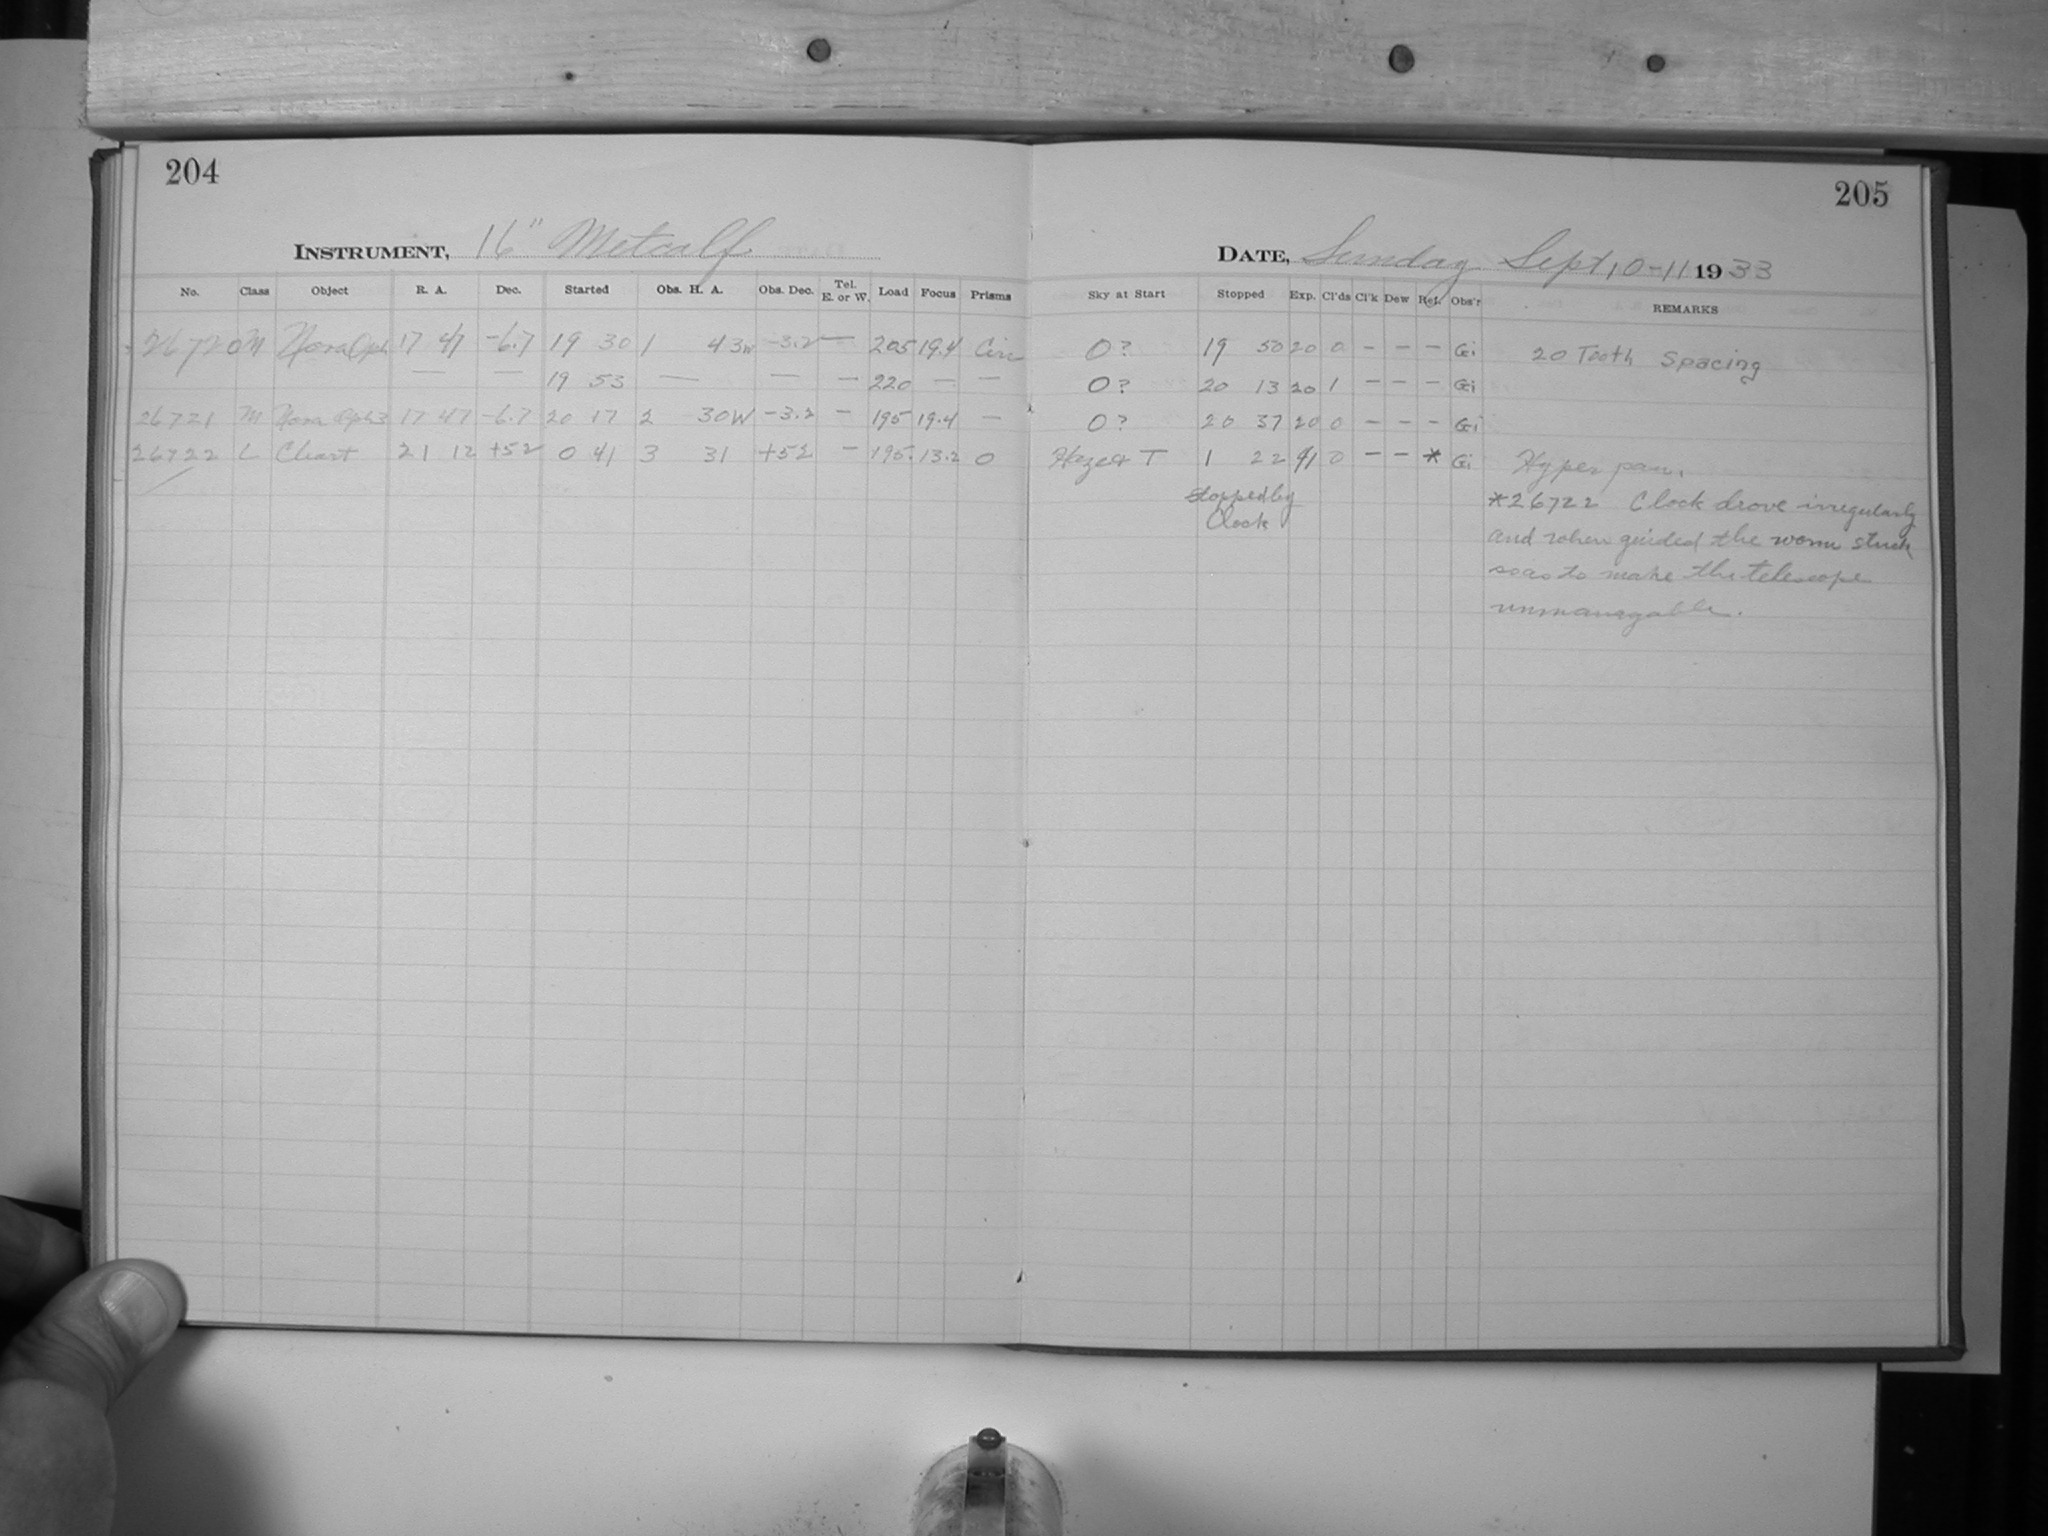 204
INSTRUMENT, 16" Metcalf
No. Class Object R. A. Dec. Started Obs. H. A. Obs. Dec. Tel. E. or W. Load Focus Prisms
26720 M Nova Oph 17 47 -6.7 19 30 1 43W -3.2 — 205 19.4 Circ
— — 19 53 — — — 220 — —
26721 M Nova Oph3 17 47 -6.7 20 17 2 30W -3.2 - 195 19.4 —
26722 L Chart 21 12 +52 0 41 3 31 +52 - 195 13.2 0
205
DATE, Sunday Sept 10-11 1933
Sky at Start Stopped Exp. Cl'ds Cl'k Dew Ref. Obs'r REMARKS
0? 19 50 20 0 - - - Gi 20 Tooth Spacing
0? 20 13 20 1 - - - Gi
0? 20 37 20 0 - - - Gi
Haze & T 1 22 41 0 - - * Gi Hyper pan.
Stopped by
Clock
*26722 Clock drove irregularly
and when guided the worm stuck
so as to make the telescope
unmanagable.